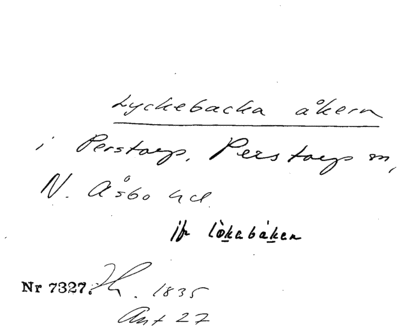 Lyckebacka åkern
i Perstorp, Perstorp sn,
N. Åsbo hd.
jfr lo̱kebåken
Nr 7327. 1835
Ant 27